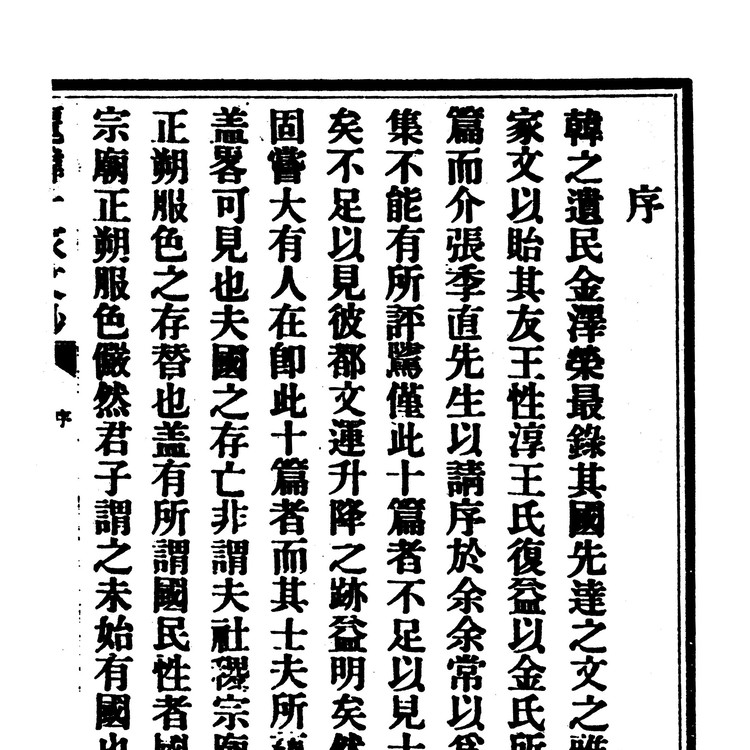 序
韓之遺民金澤榮最錄其國先達之文之雅
家文以貽其友王性淳王氏復益以金氏所
篇而介張季直先生以請序於余余常以爲
集不能有所評騭僅此十篇者不足以見十
矣不足以見彼都文運升降之跡益明矣然
固嘗大有人在卽此十篇者而其士夫所
盖畧可見也夫國之存亡非謂夫社稷宗廟
正朔服色之存替也盖有所謂國民性者國
宗廟正朔服色儼然君子謂之未始有國也
麗韓十家文鈔
序